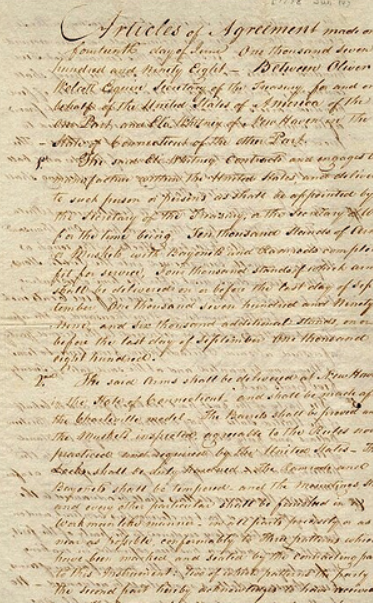 Articles of Agreement made on
fourteenth day of June One thousand seven
hundred and Ninety Eight — Between Oliver
Wolcott Esquire Secretary of the Treasury, for and on
behalf of the United States of America of the
one Part, and Eli Whitney of New Haven in the
State of Connecticut of the other Part.
The said Eli Whitney Contracts and engages to
within the United States and deliver
to such person or persons as shall be appointed by
the Secretary of the Treasury, or the Secretary of
for the time being Ten thousand Stands of
Muskets with Bayonets and Ramrods
fit for service, Four thousand stands of which
shall be delivered on or before the last day of Sep
tember One thousand seven hundred and Ninety
Nine, and six thousand additional stands, on or
before the last day of September One thousand
eight hundred.
The said Arms shall be delivered at New Haven
in the State of Connecticut, and shall be made
the Charleville model. The Barrels shall be proved and
the Muskets inspected agreeable to the Rules now
practiced and required by the United States — The
Locks shall be duly hardened The Ramrods and
Bayonets shall be tempered and the
and every other particular shall be finished in a
Workmanlike manner — in all parts precisely or as
near as possible conformably to three patterns which
have been marked and sealed by the contracting
to this Instrument; two of which patterns the party
the second part hereby acknowledges to have received